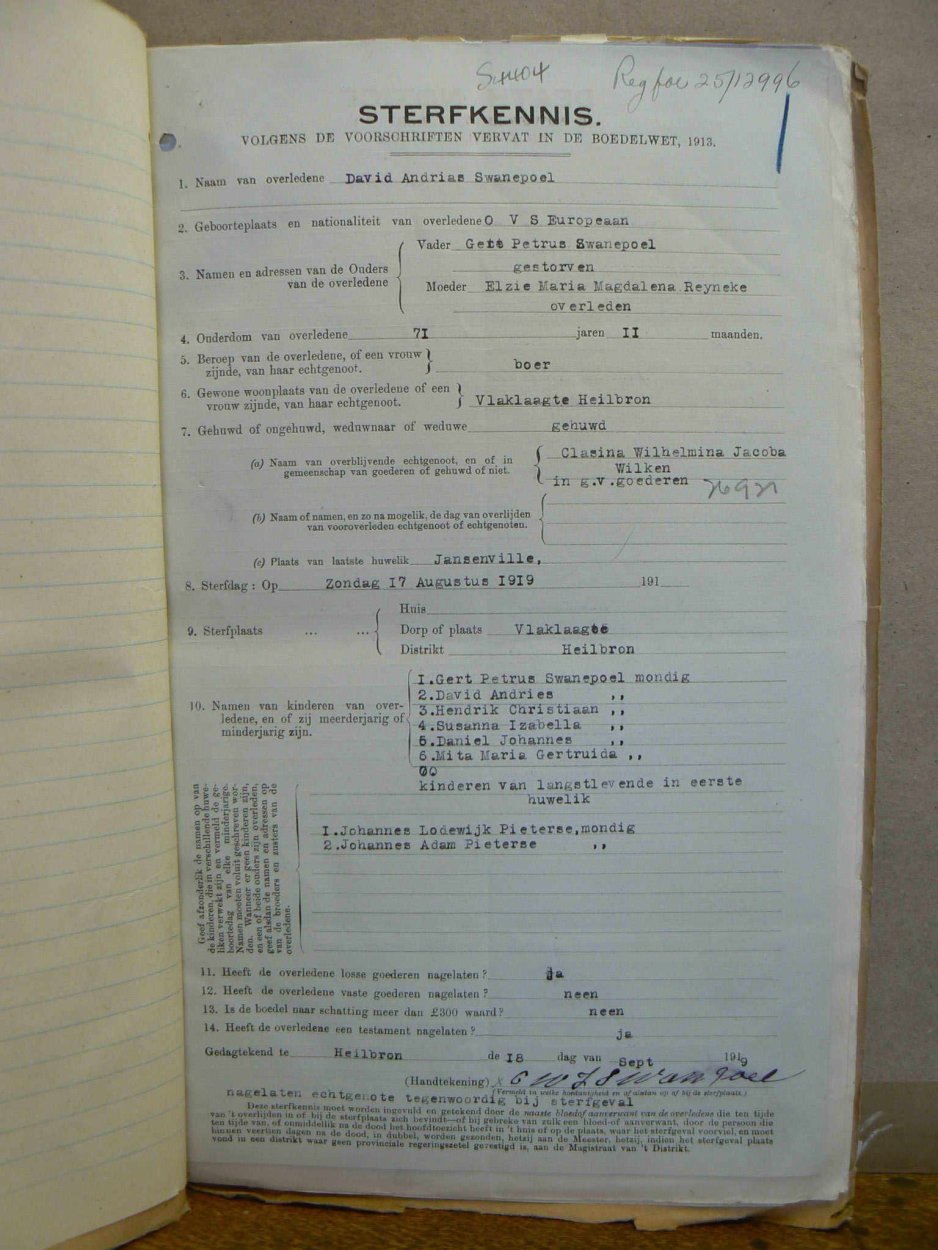 Reg for 25/12996
STERFKENNIS.
VOLGENS DE VOORSCHRIFTEN VERVAT IN DE BOEDELWET, 1913.
1. Naam van overledene David Andrias Swanepoel
2. Geboorteplaats en nationaliteit van overledene O V S Europeaan
3. Namen en adressen van de Ouders van de overledene
Vader Gett Petrus Swanepoel
gestorven
Moeder Elzie Maria Magdalena Reyneke
overleden
4. Onderdom van overledene 71 jaren II maanden.
5. Beroep van de overledene, of een vrouw
zijnde, van haar echtgenoot. boer
6. Gewone woonplaats van de overledene of een
vrouw zijnde, van haar echtgenoot. Vlaklaagte Heilbron
7. Gehuwd of ongehuwd, weduwnaar of weduwe gehuwd
(a) Naam van overblijvende echtgenoot, en of in
gemeenschap van goederen of gehuwd of niet.
Clasina Wilhelmina Jacoba
Wilken
in g.v.goederen
(b) Naam of namen, en zo na mogelik, de dag van overlijden
van vooroverleden echtgenoot of echtgenoten.
(c) Plaats van laatste huwelik Jansenville,
8. Sterfdag: Op Zondag I7 Augustus I9I9 191
9. Sterfplaats ... ...
Huis
Dorp of plaats Vlaklaagte
Distrikt Heilbron
10. Namen van kinderen van over-
ledene, en of zij meerderjarig of
minderjarig zijn.
I.Gert Petrus Swanepoel mondig
2.David Andries ,,
3.Hendrik Christiaan ,,
4.Susanna Izabella ,,
5.Daniel Johannes ,,
6.Mita Maria Gertruida ,,
kinderen van langstlevende in eerste
huwelik
I.Johannes Lodewijk Pieterse,mondig
2.Johannes Adam Pieterse ,,
Geef afzonderlik de namen op van
de kinderen, die in verschillende huwe-
liken verwekt zijn en vermeld de ge-
boortedag van elke minderjarige.
Namen moeten voluit geschreven wor-
den. Wanneer er geen kinderen zijn,
en een of beide ouders zijn overleden,
geef alsdan de namen en adressen op
van de broeders en zusters van de
overledene.
11. Heeft de overledene losse goederen nagelaten? ja
12. Heeft de overledene vaste goederen nagelaten? neen
13. Is de boedel naar schatting meer dan £300 waard? neen
14. Heeft de overledene een testament nagelaten? ja
Gedagtekend te Heilbron de I8 dag van Sept 1919
(Handtekening) x C W J Swanepoel
(Vermeld in welke hoedanigheid en of aldan op of bij de sterfplaats.)
nagelaten echtgenote tegenwoordig bij sterfgeval
Deze sterfkennis moet worden ingevuld en getekend door de naaste bloedof aanverwant van de overledene die ten tijde
van 't overlijden in of bij de sterfplaats zich bevindt—of bij gebreke van zulk een bloed-of aanverwant, door de persoon die
ten tijde van, of onmiddellik na de dood het hoofdtoezicht heeft in 't huis of op de plaats, waar het sterfgeval voorviel, en moet
binnen veertien dagen na de dood, in dubbel, worden gezonden, hetzij aan de Meester, hetzij, indien het sterfgeval plaats
vond in een distrikt waar geen provinciale regeringszetel gevestigd is, aan de Magistraat van 't Distrikt.